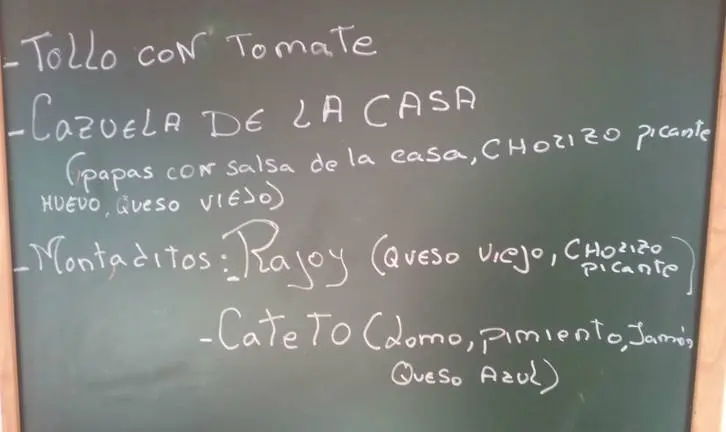 - Tollo con Tomate
- Cazuela DE LA CASA
(papas con salsa de la casa, CHORIZO picante
HUEVO, QUESO VIEJO)
- Montaditos: Rajoy (QUESO Viejo, CHORIZO
picante)
- CateTO (Lomo, pimiento, Jamón,
QUESO AZUL)